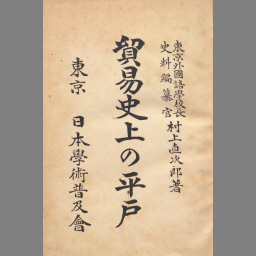 東京外國語學校長
史料編纂官
村上直次郎著
貿易史上の平戸
東京 日本學術普及會